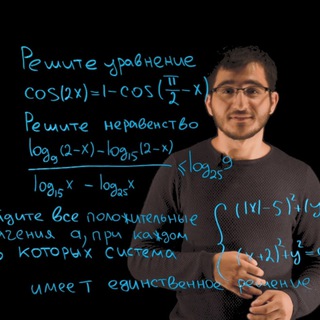 Решите уравнение
cos(2x)=1-cos(π/2-x)
Решите неравенство
(log₉(2-x)-log₁₅(2-x))/(log₁₅x-log₂₅x) ≤ log₂₅9
йдите все положительные
ачения a, при каждом
з которых система
{ (|x|-5)²+(y
(x+2)²+y²=
имеет единственное решение